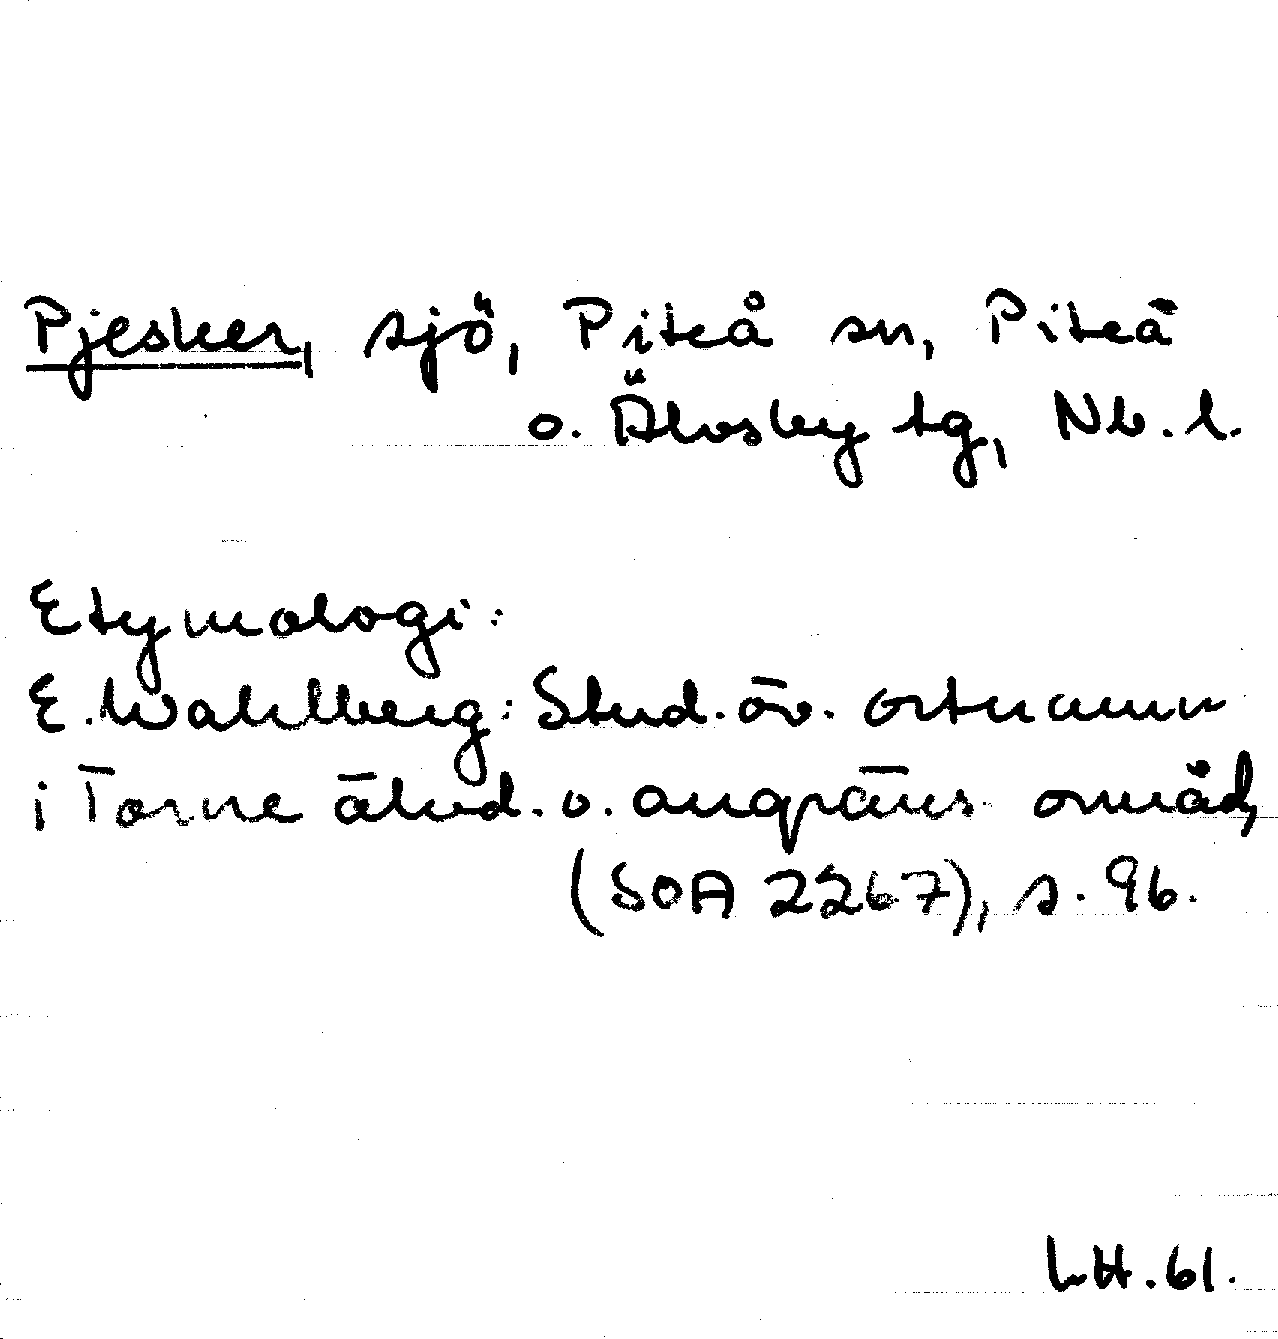 Pjesker, sjö, Piteå sn, Piteå
o. Älvsby tg, Nb. l.
Etymologi:
E. Wahlberg: Stud. öv. ortnamn
i Torne älvd. o. angräns. område,
(SOA 2267), s. 96.
LH. 61.